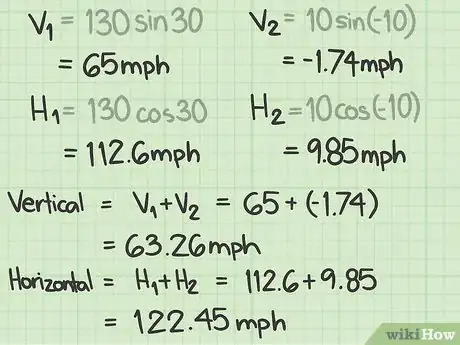 V₁ = 130 sin 30 V₂ = 10 sin(-10)
= 65 mph = -1.74 mph
H₁ = 130 cos 30 H₂ = 10 cos(-10)
= 112.6 mph = 9.85 mph
Vertical = V₁ + V₂ = 65 + (-1.74)
= 63.26 mph
Horizontal = H₁ + H₂ = 112.6 + 9.85
= 122.45 mph
wikiHow